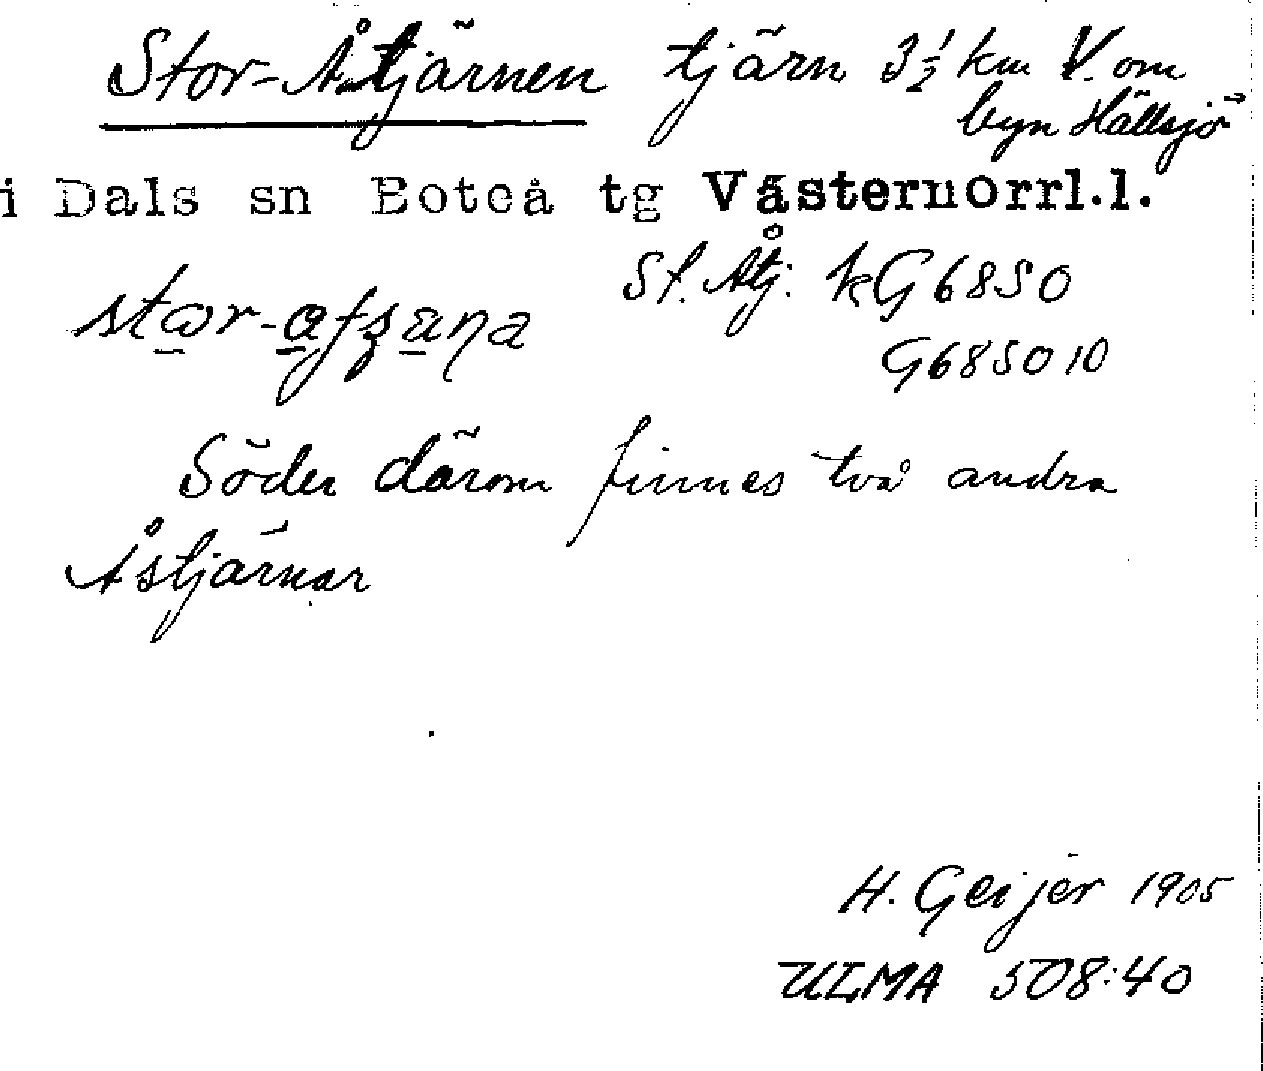 Stor-Åtjärnen tjärn 3½ km V. om
byn Hällsjö
i Dals sn Boteå tg Västernorrl.l.
St. Åtj. kG6850
G685010
Söder därom finnes två andra
Åstjärnar
H. Geijer 1905
ULMA 508:40